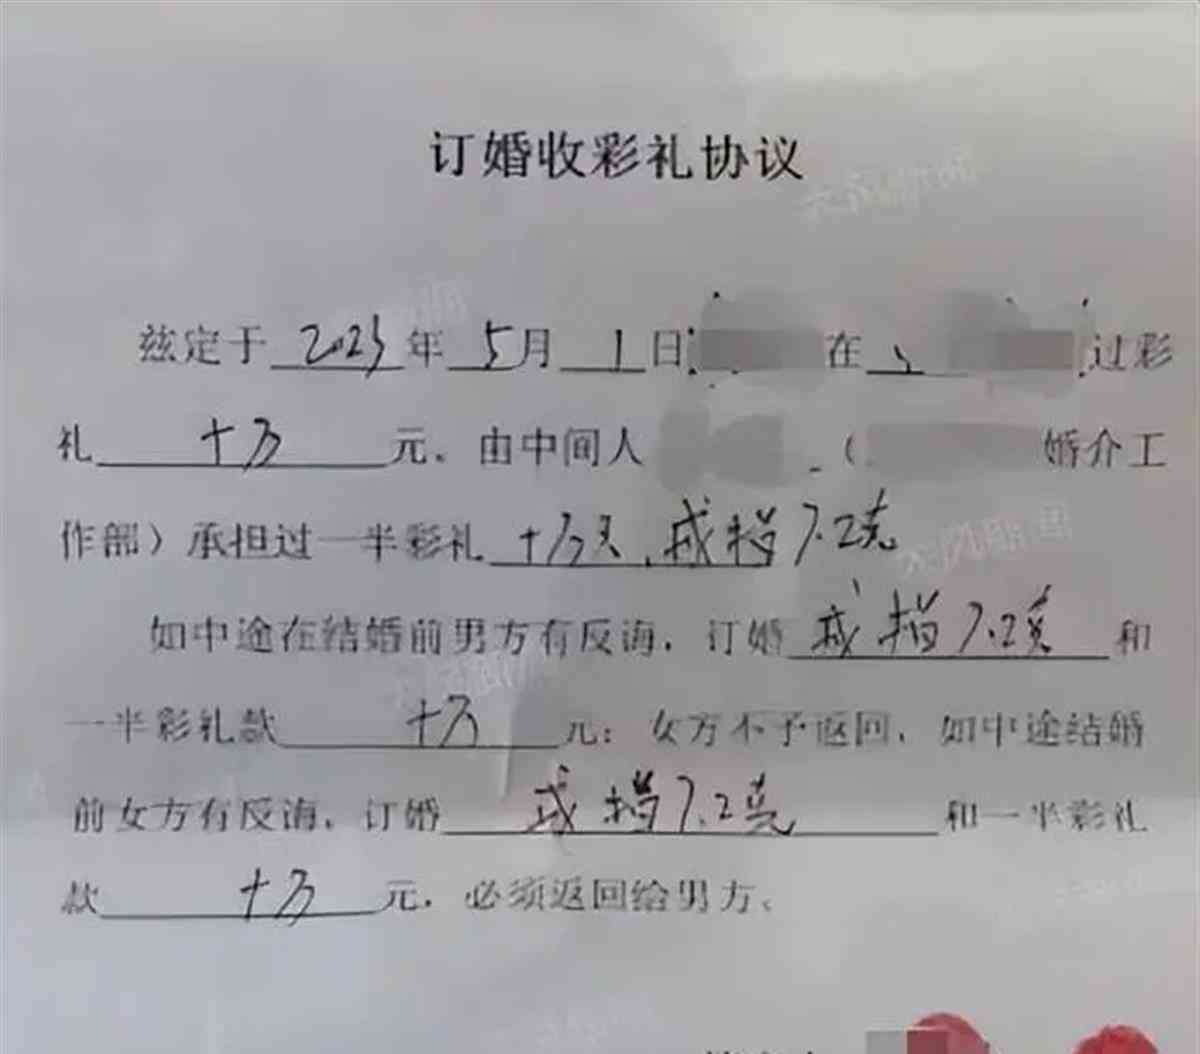 订婚收彩礼协议
兹定于 2023 年 5 月 1 日 在 过彩
礼 十万 元。由中间人 （ 婚介工
作部）承担过一半彩礼 十万元、戒指7.2克
如中途在结婚前男方有反诲，订婚 戒指7.2克 和
一半彩礼款 十万 元；女方不予返回，如中途结婚
前女方有反诲，订婚 戒指7.2克 和一半彩礼
款 十万 元，必须返回给男方。